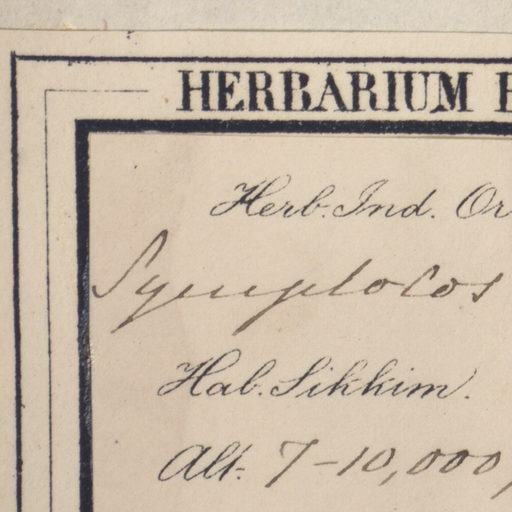 HERBARIUM
Herb. Ind. Or
Symplocos
Hab. Sikkim.
Alt. 7-10,000,